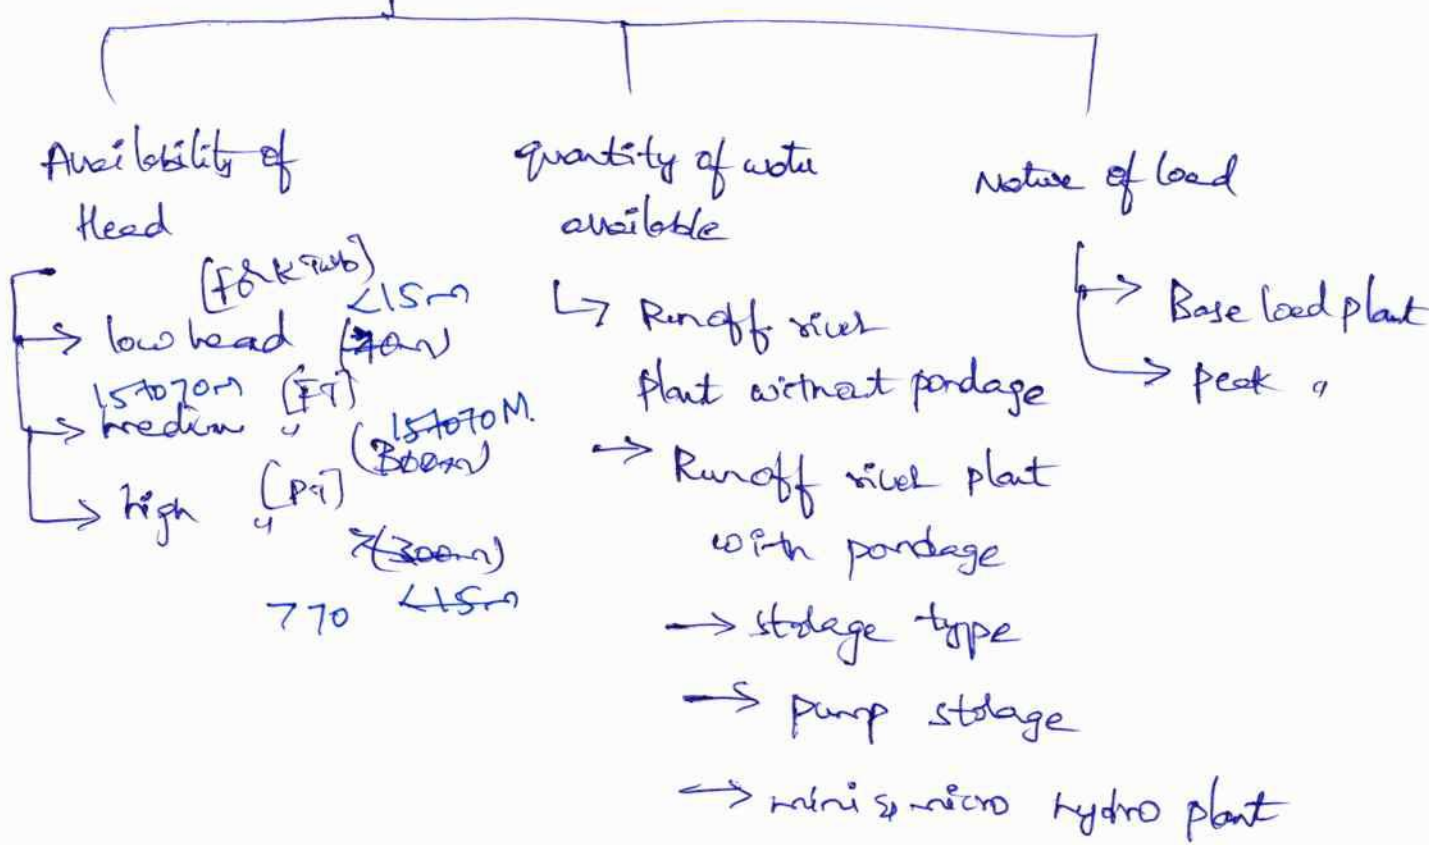 Availability of
Head
[F & K Turb]
<15m
low head (70m)
15 to 70m [FT]
medium " 15 to 70 M.
(300m)
high " [PT]
>(300m)
>70 <15m
quantity of water
available
Runoff river
plant without pondage
Runoff river plant
with pondage
storage type
pump storage
mini & micro hydro plant
Nature of load
Base load plant
peak "